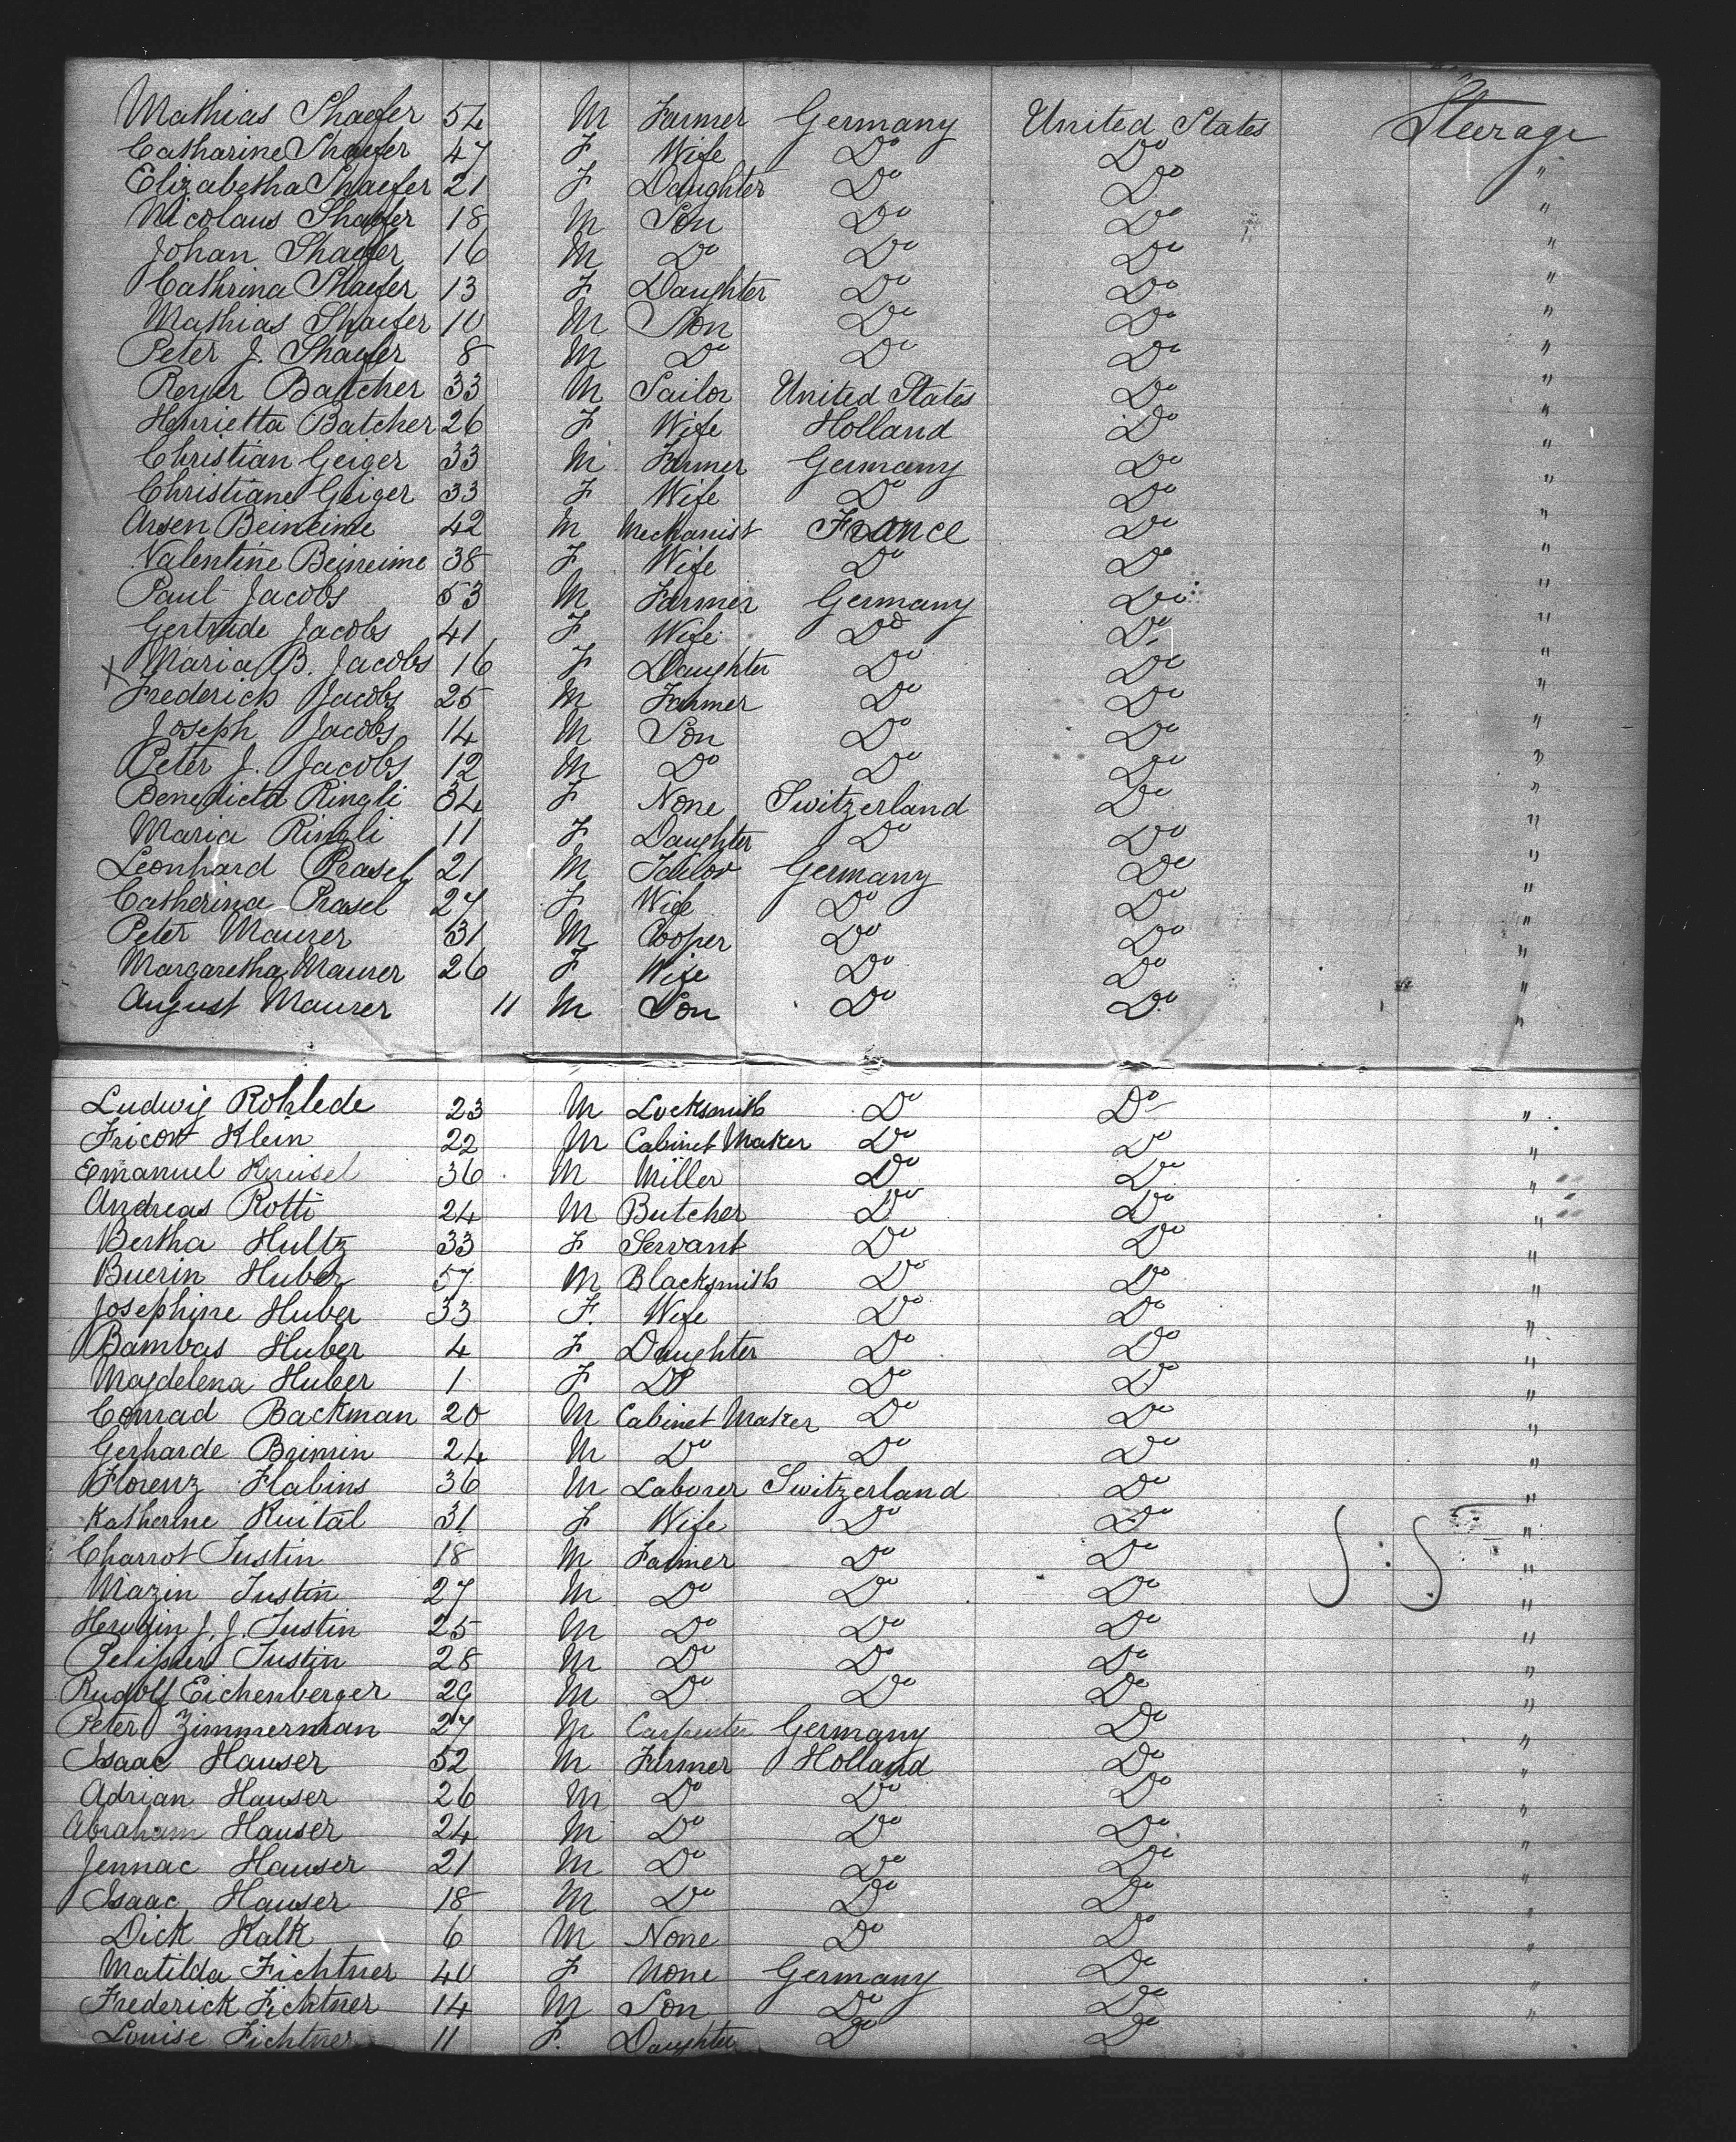 Mathias Shaefer 54 M Farmer Germany United States Steerage
Catharine Shaefer 47 F Wife Do Do "
Elizabetha Shaefer 21 F Daughter Do Do "
Nicolaus Shaefer 18 M Son Do Do "
Johan Shaefer 16 M Do Do Do "
Cathrina Shaefer 13 F Daughter Do Do "
Mathias Shaefer 10 M Son Do Do "
Peter J. Shaefer 8 M Do Do Do "
Reyer Batcher 33 M Sailor United States Do "
Henrietta Batcher 26 F Wife Holland Do "
Christian Geiger 33 M Farmer Germany Do "
Christiane Geiger 33 F Wife Do Do "
Arsen Beineime 42 M Mechanist France Do "
Valentine Beineime 38 F Wife Do Do "
Paul Jacobs 53 M Farmer Germany Do "
Gertrude Jacobs 41 F Wife Do Do "
X Maria B. Jacobs 16 F Daughter Do Do "
Frederich Jacobs 25 M Farmer Do Do "
Joseph Jacobs 14 M Son Do Do "
Peter J. Jacobs 12 M Do Do Do "
Benedicta Ringli 34 F None Switzerland Do "
Maria Ringli 11 F Daughter Do Do "
Leonhard Prasel 21 M Tailor Germany Do "
Catherina Prasel 27 F Wife Do Do "
Peter Maurer 31 M Cooper Do Do "
Margaretha Maurer 26 F Wife Do Do "
August Maurer 11 M Son Do Do "
Ludwig Rohlede 23 M Locksmith Do Do "
Fricon Klein 22 M Cabinet Maker Do Do "
Emanuel Kreisel 36 M Miller Do Do "
Andreas Rotti 24 M Butcher Do Do "
Bertha Hultz 33 F Servant Do Do "
Buerin Huber 57 M Blacksmith Do Do "
Josephine Huber 33 F. Wife Do Do "
Bambas Huber 4 F Daughter Do Do "
Magdelena Huber 1 F Do Do Do "
Conrad Backman 20 M Cabinet Maker Do Do "
Gerharde Brimin 24 M Do Do Do "
Florenz Flabins 36 M Laborer Switzerland Do "
Katherine Ruital 31 F Wife Do Do "
Charrot Justin 18 M Farmer Do Do "
Mazin Justin 27 M Do Do Do "
J. J. Justin 25 M Do Do Do "
Justin 28 M Do Do Do "
Rudolf Eichenberger 29 M Do Do Do "
Peter Zimmerman 27 M Carpenter Germany Do "
Isaac Hauser 52 M Farmer Holland Do "
Adrian Hauser 26 M Do Do Do "
Abraham Hauser 24 M Do Do Do "
Jennac Hauser 21 M Do Do Do "
Isaac Hauser 18 M Do Do Do "
Dick Kalk 6 M None Do Do "
Matilda Fichtner 40 F None Germany Do "
Frederick Fichtner 14 M Son Do Do "
Louise Fichtner 11 F. Daughter Do Do